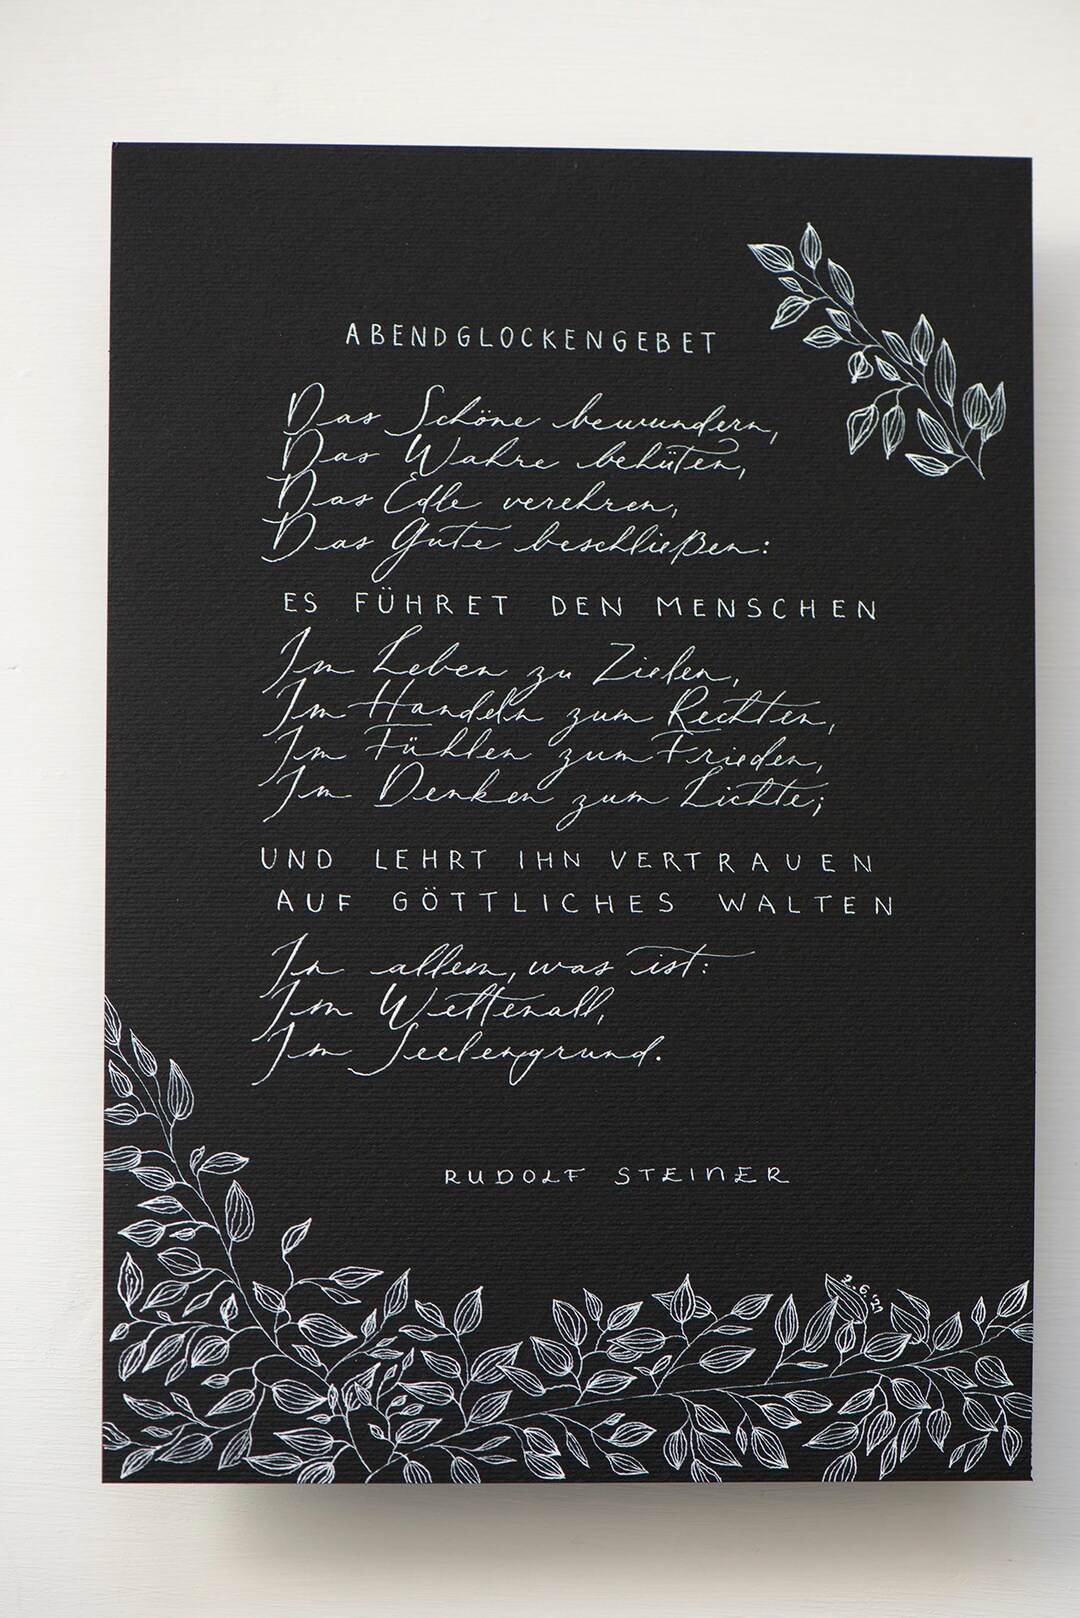 ABENDGLOCKENGEBET
Das Schöne bewundern,
Das Wahre behüten,
Das Edle verehren,
Das Gute beschließen:
ES FÜHRET DEN MENSCHEN
Im Leben zu Zielen,
Im Handeln zum Rechten,
Im Fühlen zum Frieden,
Im Denken zum Lichte;
UND LEHRT IHN VERTRAUEN
AUF GÖTTLICHES WALTEN
In allem, was ist:
Im Weltenall,
Im Seelengrund.
RUDOLF STEINER